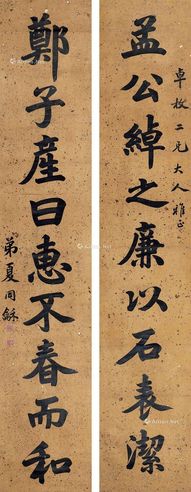 孟公綽之廉以石表潔
卓枚二兄大人雅正
鄭子產曰惠不春而和
弟夏同龢